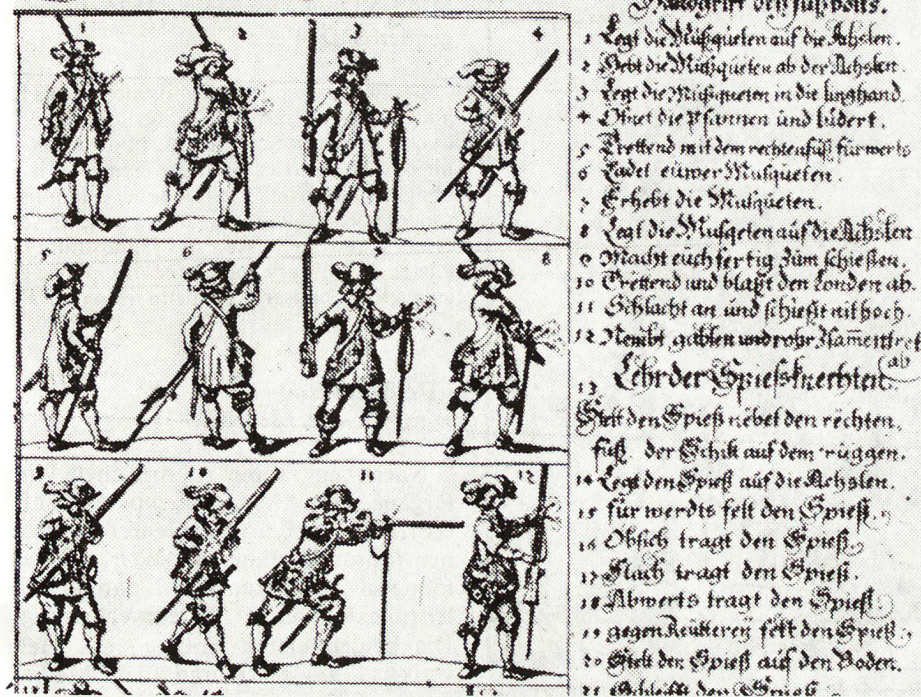 1 2 3 4
5 6 7 8
9 10 11 12
Handgriff deß fußvolks.
1 Legt die Mußqueten auf die Achslen.
2 Hebt die Mußqueten ab der Achslen.
3 Legt die Mußqueten in die linghand.
4 Ofnet die Pfannen und lüdert.
5 Trettend mit dem rechten fuß fürwerts
6 Ladet eüwer Mußqueten.
7 Erhebt die Mußqueten.
8 Legt die Mußqeten auf die Achslen
9 Macht euch fertig zum schießen.
10 Trettend und blaßt den Londen ab.
11 Schlacht an und schießt nit hoch.
12 Nembt gablen und rohr
ab
13 Lehr der Spiessknechten
Stelt den Spieß nebet den rechten
fuß. der Schilt auf dem ruggen.
14 Legt den Spieß auf die Achslen.
15 für werdts felt den Spieß.
16 Obsich tragt den Spieß.
17 Flach tragt den Spieß.
18 Abwerts tragt den Spieß.
19 gegen Reütterey felt den Spieß.
20 Stelt den Spieß auf den Boden.
21 Schleifft den Spieß